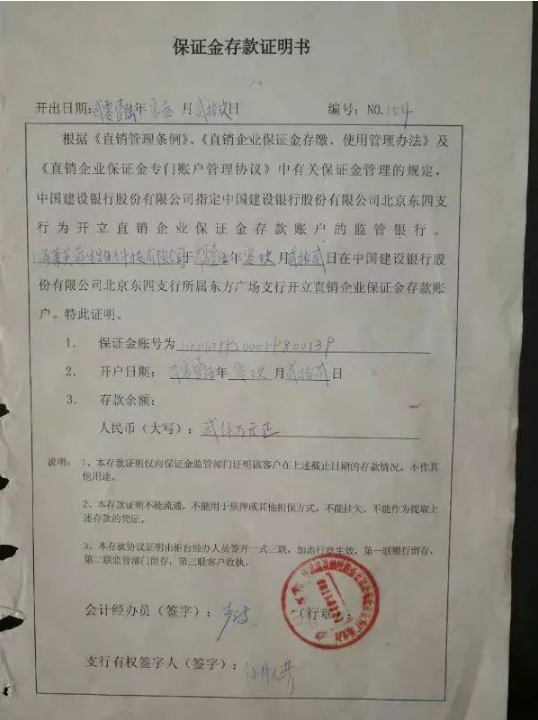 保证金存款证明书
开出日期:贰零壹陆年零 月贰拾玖日 编号:NO.154
根据《直销管理条例》、《直销企业保证金存缴、使用管理办法》及
《直销企业保证金专门账户管理协议》中有关保证金管理的规定,
中国建设银行股份有限公司指定中国建设银行股份有限公司北京东四支
行为开立直销企业保证金存款账户的监管银行。
科技有限公司于贰零壹 年零玖月贰拾贰日在中国建设银行股
份有限公司北京东四支行所属东方广场支行开立直销企业保证金存款账
户。特此证明。
1. 保证金账号为
2. 开户日期: 贰零壹 年零玖月贰拾贰日
3. 存款余额:
人民币(大写): 贰仟万元正
说明: 1、本存款证明仅向保证金监管部门证明该客户在上述截止日期的存款情况,不作其
他用途。
2、本存款证明不能流通,不能用于质押或其他担保方式,不能挂失、不能作为提取上
述存款的凭证。
3、本存款协议证明由柜台经办人员签开一式三联,加盖行章生效,第一联银行留存,
第二联监管部门留存,第三联客户收执。
会计经办员(签字): (行章)
支行有权签字人(签字):